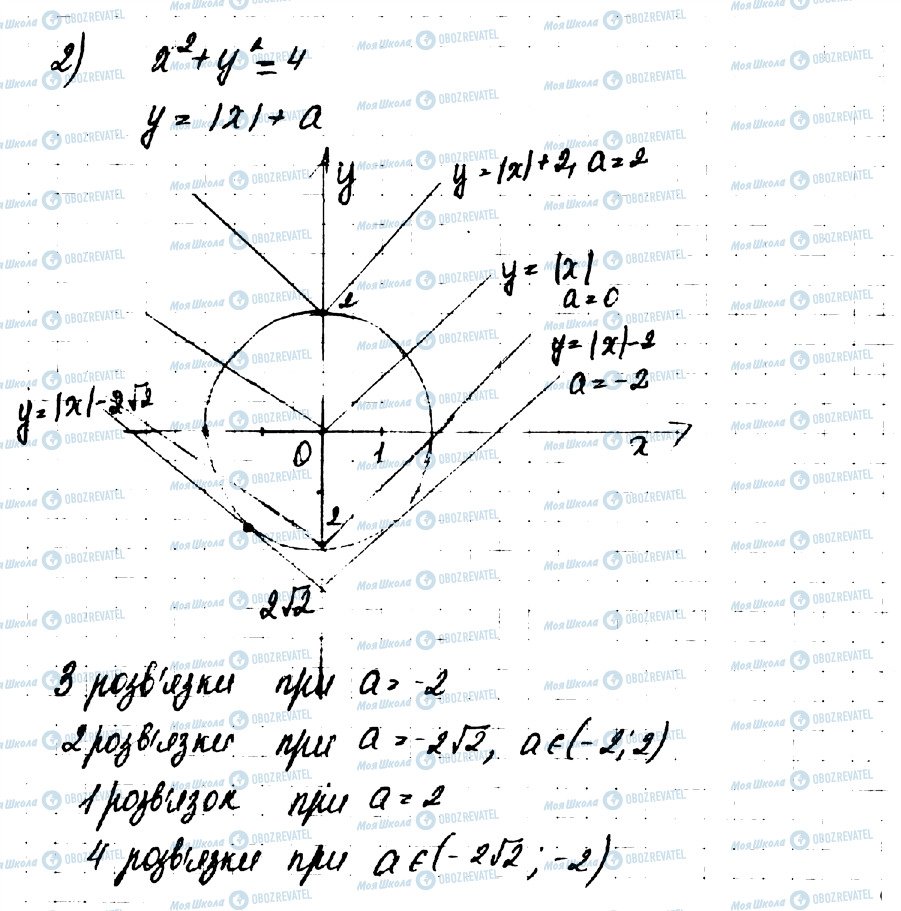 2) x² + y² = 4
y = |x| + a
y
y = |x| + 2, a = 2
2
y = |x|
a = 0
y = |x| - 2
a = -2
y = |x| - 2√2
0 1 x
2
2√2
3 розв'язки при a = -2
2 розв'язки при a = -2√2, a ∈ (-2; 2)
1 розв'язок при a = 2
4 розв'язки при a ∈ (-2√2; -2)
Моя Школа OBOZREVATEL